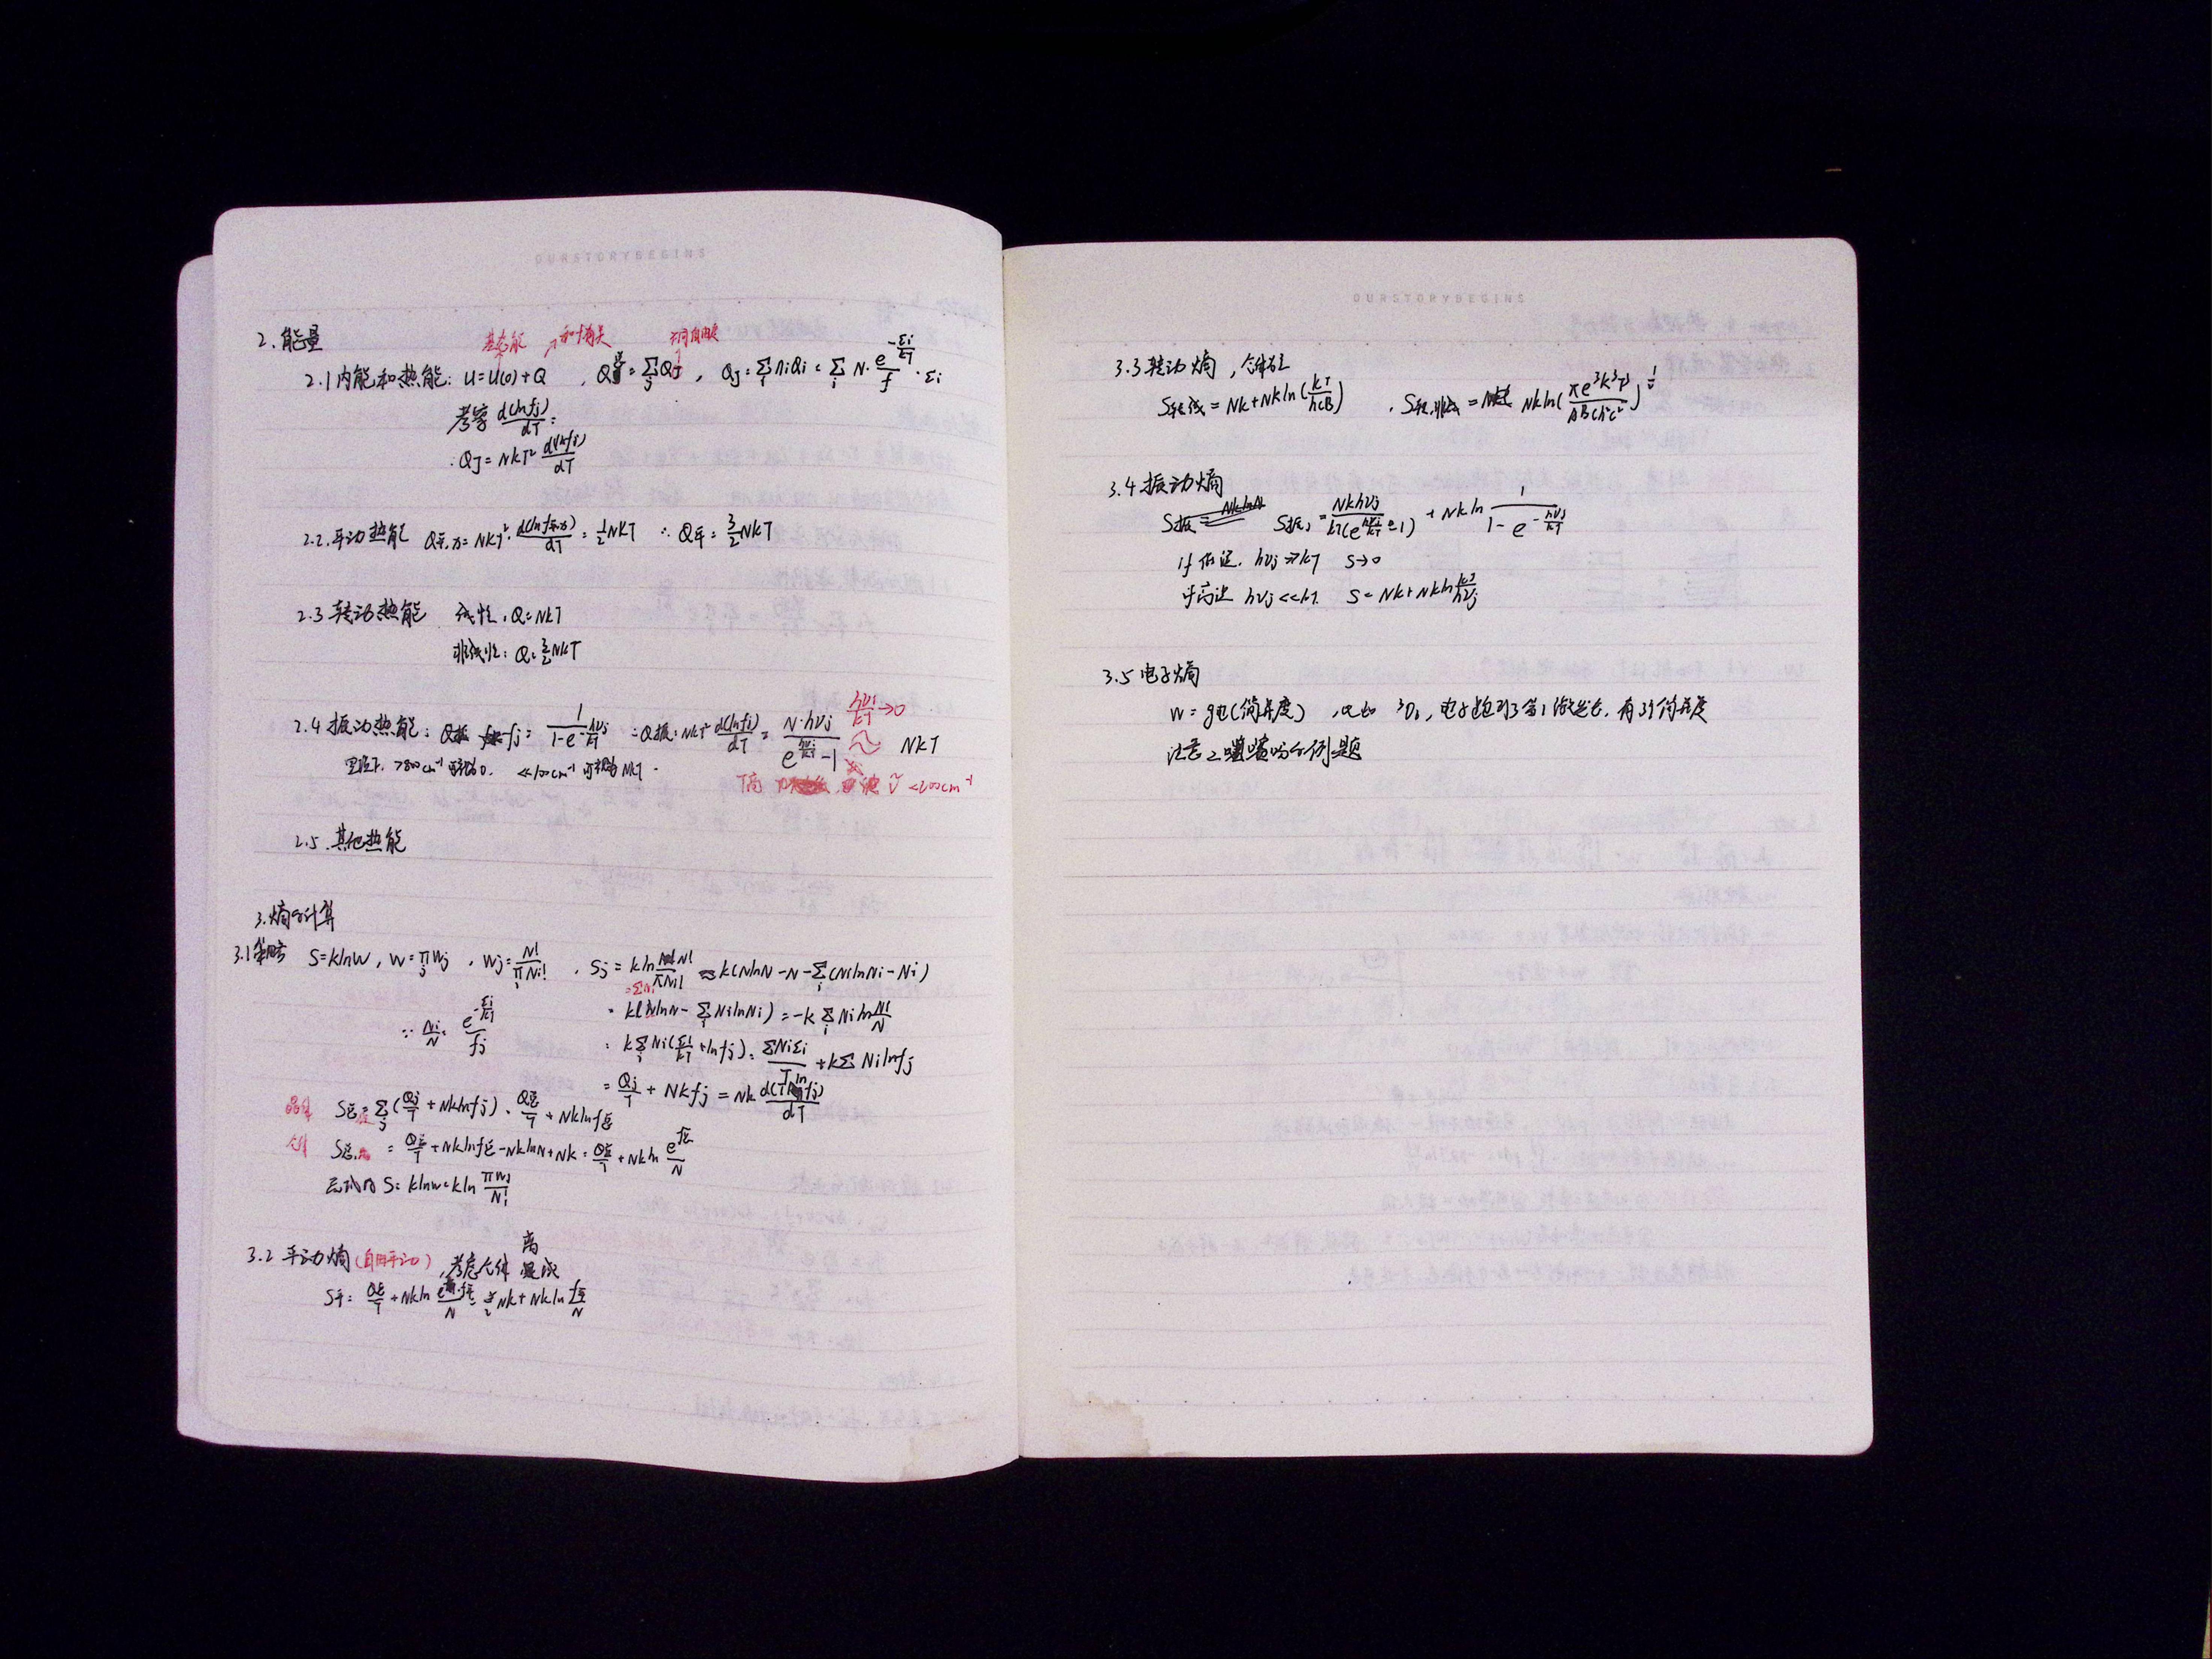 OURSTORYBEGINS
2. 能量
基态能 和T有关 不同自由度
2.1 内能和热能: U=U(0)+Q , Q总=∑j Qj , Qj=∑i niQi = ∑i N·e^(-εi/kT)/f·εi
考察 d(lnfj)/dT:
∴Qj=NkT² d(lnfj)/dT
2.2. 平动热能 Q平,x=NkT²·d(lnf平,x)/dT=½NkT ∴Q平=3/2NkT
2.3 转动热能 线性:Q=NkT
非线性: Q=3/2NkT
2.4 振动热能: Q振 fj= 1/(1-e^(-hνj/kT)) ∴Q振=NkT² d(lnfj)/dT = N·hνj/(e^(hνj/kT)-1) hνj/kT→0 NkT
室温下, >800cm⁻¹ 可视为0. <<100cm⁻¹ 可视为NkT.
T高 ν̃<200cm⁻¹
2.5. 其他热能
3.熵的计算
3.1策略 S=klnW, W=∏j Wj , Wj=N!/∏i Ni! , Sj=kln N!/∏Ni! ≈k(NlnN-N-∑i(NilnNi-Ni)
=∑Ni
= k(NlnN-∑i NilnNi)=-k∑i Niln Ni/N
∵ Ni/N= e^(-εi/kT)/fj
= k∑i Ni(εi/kT+lnfj)=∑Niεi/T+k∑Nilnfj
= Qj/T+Nkfj=Nk d(Tlnfj)/dT
晶体 S总=∑j(Qj/T+Nklnfj)=Q总/T+Nklnf总
气体 S总 = Q总/T+Nklnf总-NklnN+Nk=Q总/T+Nkln ef总/N
S=klnW=kln ∏Wj/N!
3.2 平动熵(自由平动),考虑气体 离
S平= Q平/T+Nkln e·f平/N=5/2Nk+Nkln f平/N
OURSTORYBEGINS
3.3 转动熵,
S转,线=Nk+Nkln(kT/hcB) , S转,非线= Nkln(πe³k³T³/ABCh³c³)^½
3.4 振动熵
S振j=Nkhνj/kT(e^(hνj/kT)-1)+Nkln 1/(1-e^(-hνj/kT))
if 低温. hνj≫kT S→0
if高温 hνj<<kT. S=Nk+Nkln kT/hνj
3.5 电子熵
W=g电(简并度)